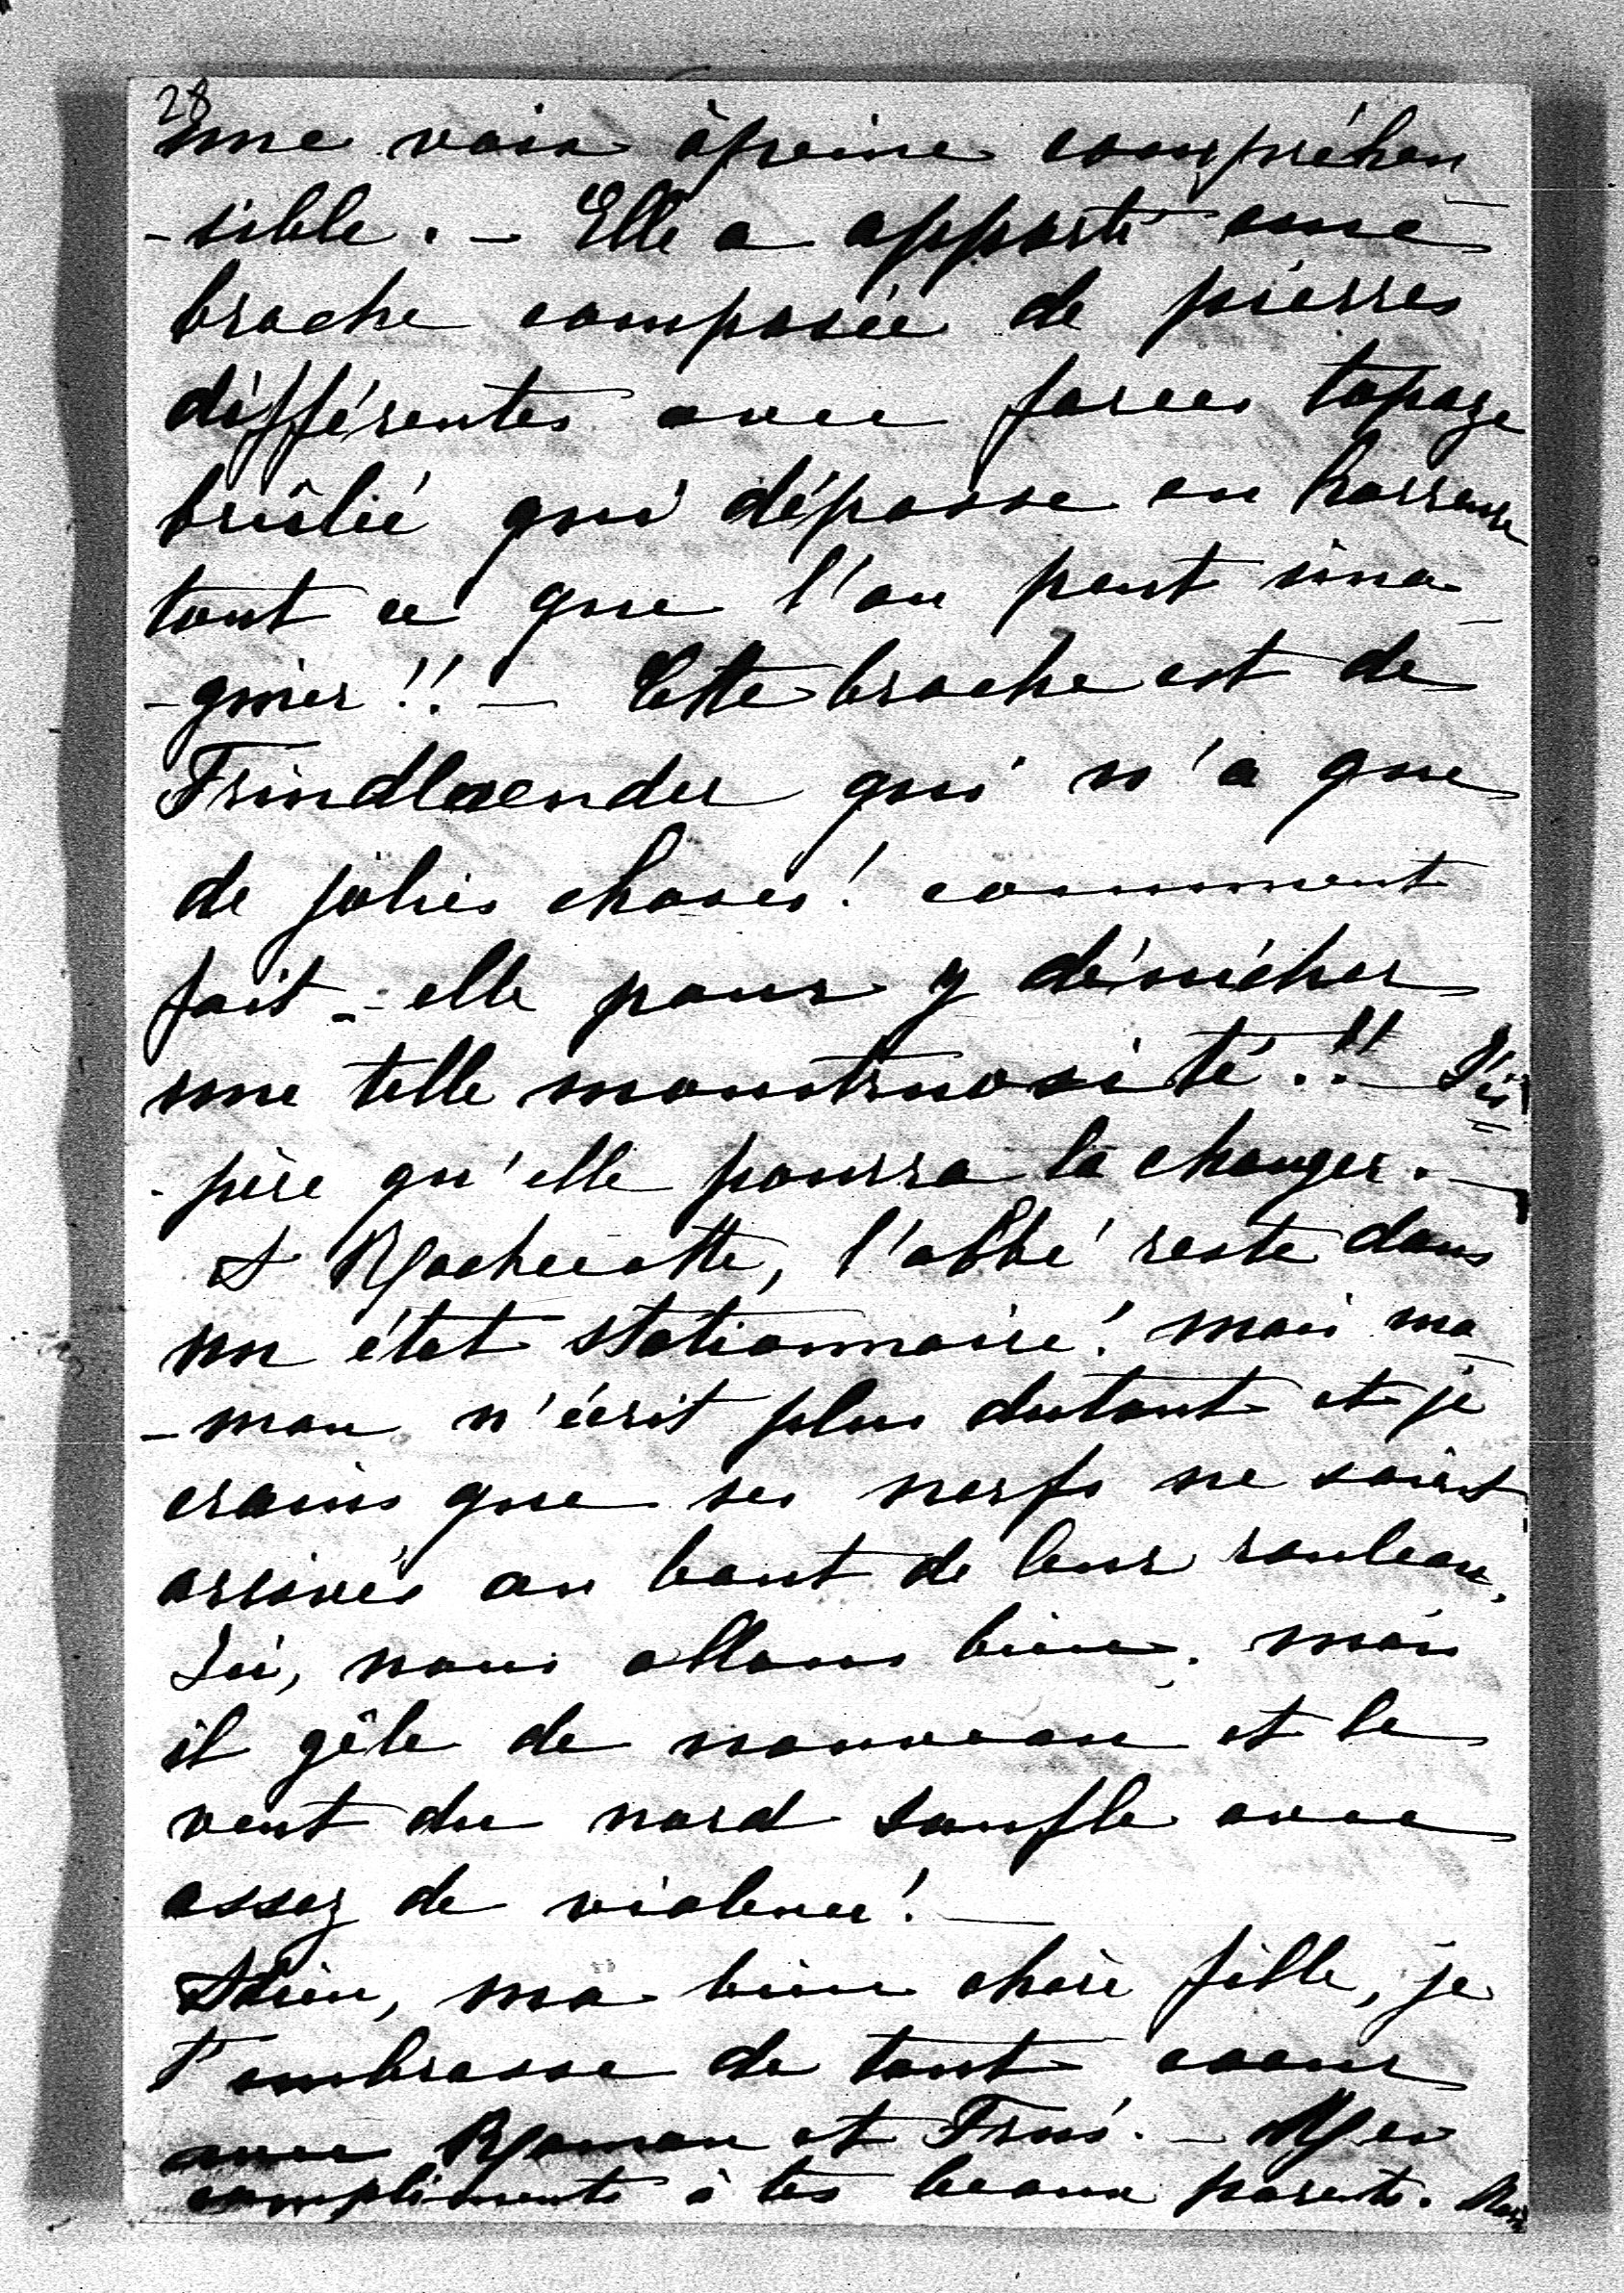 28
une voix àpeine compréhen
-sible. - Elle a apporté une
broche composée de pierres
différentes avec forces topaze
brûlée qui dépasse en horreur
tout ce que l'on peut ima-
-giner !! - Cette broche est de
Frindlaender qui n'a que
de jolies choses ! comment
fait-elle pour y dénicher
une telle monstruosité !! J'es=
-père qu'elle pourra la changer. -
A Rochecotte, l'abbé reste dans
un état stationnaire ! mais ma-
-man n'écrit plus dutout et je
crains que ses nerfs ne soient
arrivés au bout de leur rouleau.
Ici, nous allons bien. mais
il gêle de nouveau et le
vent du nord soufle avec
assez de violence ! -
Adieu, ma bien chère fille, je
t'embrasse de tout coeur
avec Roman et - Mes
compliments à tes beaux parents.